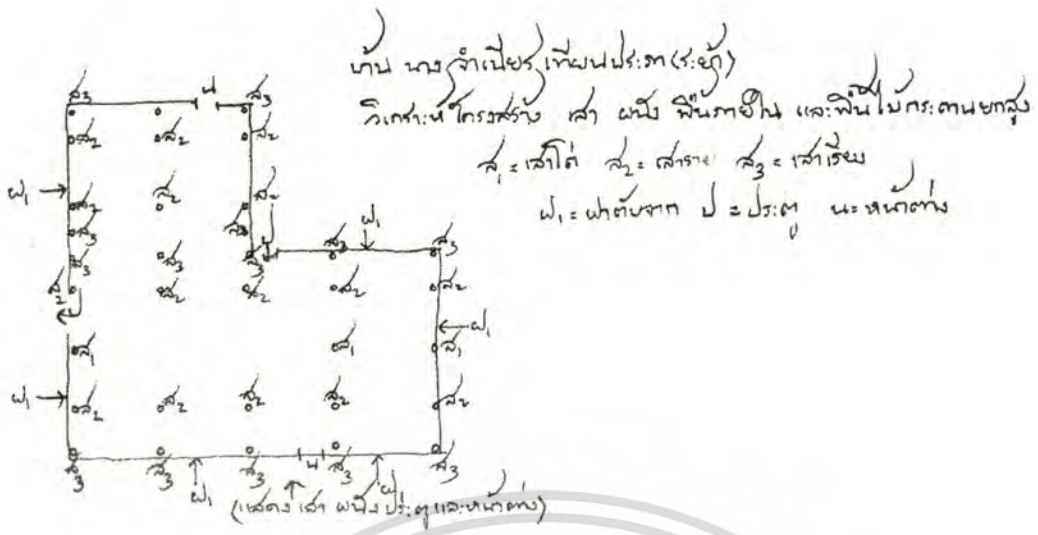 บ้าน นาง จำเนียร เทียนประภา (ระย้า)
วิเคราะห์โครงสร้าง เสา ผนัง พื้นภายใน และพื้นไม้กระดานยกสูง
ส₁ = เสาโด่ ส₂ = เสาราย ส₃ = เสาเรียบ
ฝ₁ = ฝาตับจาก ป = ประตู น = หน้าต่าง
ส₃ น ส₃
ส₂ ส₂ ส₂
ฝ₁
ส₂ ส₂ ส₂
ส₃ ส₃ ป ส₃ ฝ₁ ส₃
ส₃ ส₃ ส₃
ส₂ ส₂ ส₂ ส₂ ส₂
ป
ส₁ ส₁ ส₁ ฝ₁
ฝ₁ ส₂ ส₂ ส₂ ส₂ ส₂
ส₃ ส₃ ส₃ น ส₃ ส₃
ฝ₁ ฝ₁
(แสดง เสา ผนัง ประตู และหน้าต่าง)